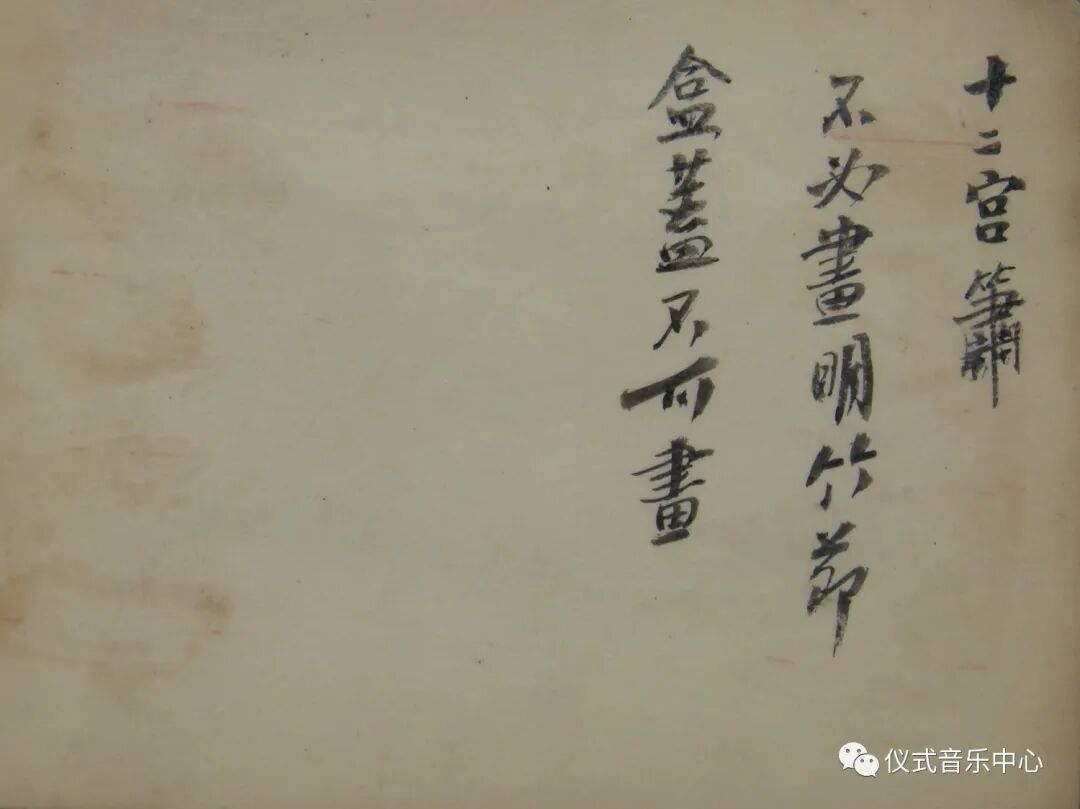 十二宫簫
不必畫明竹節
盒蓋不可畫
仪式音乐中心